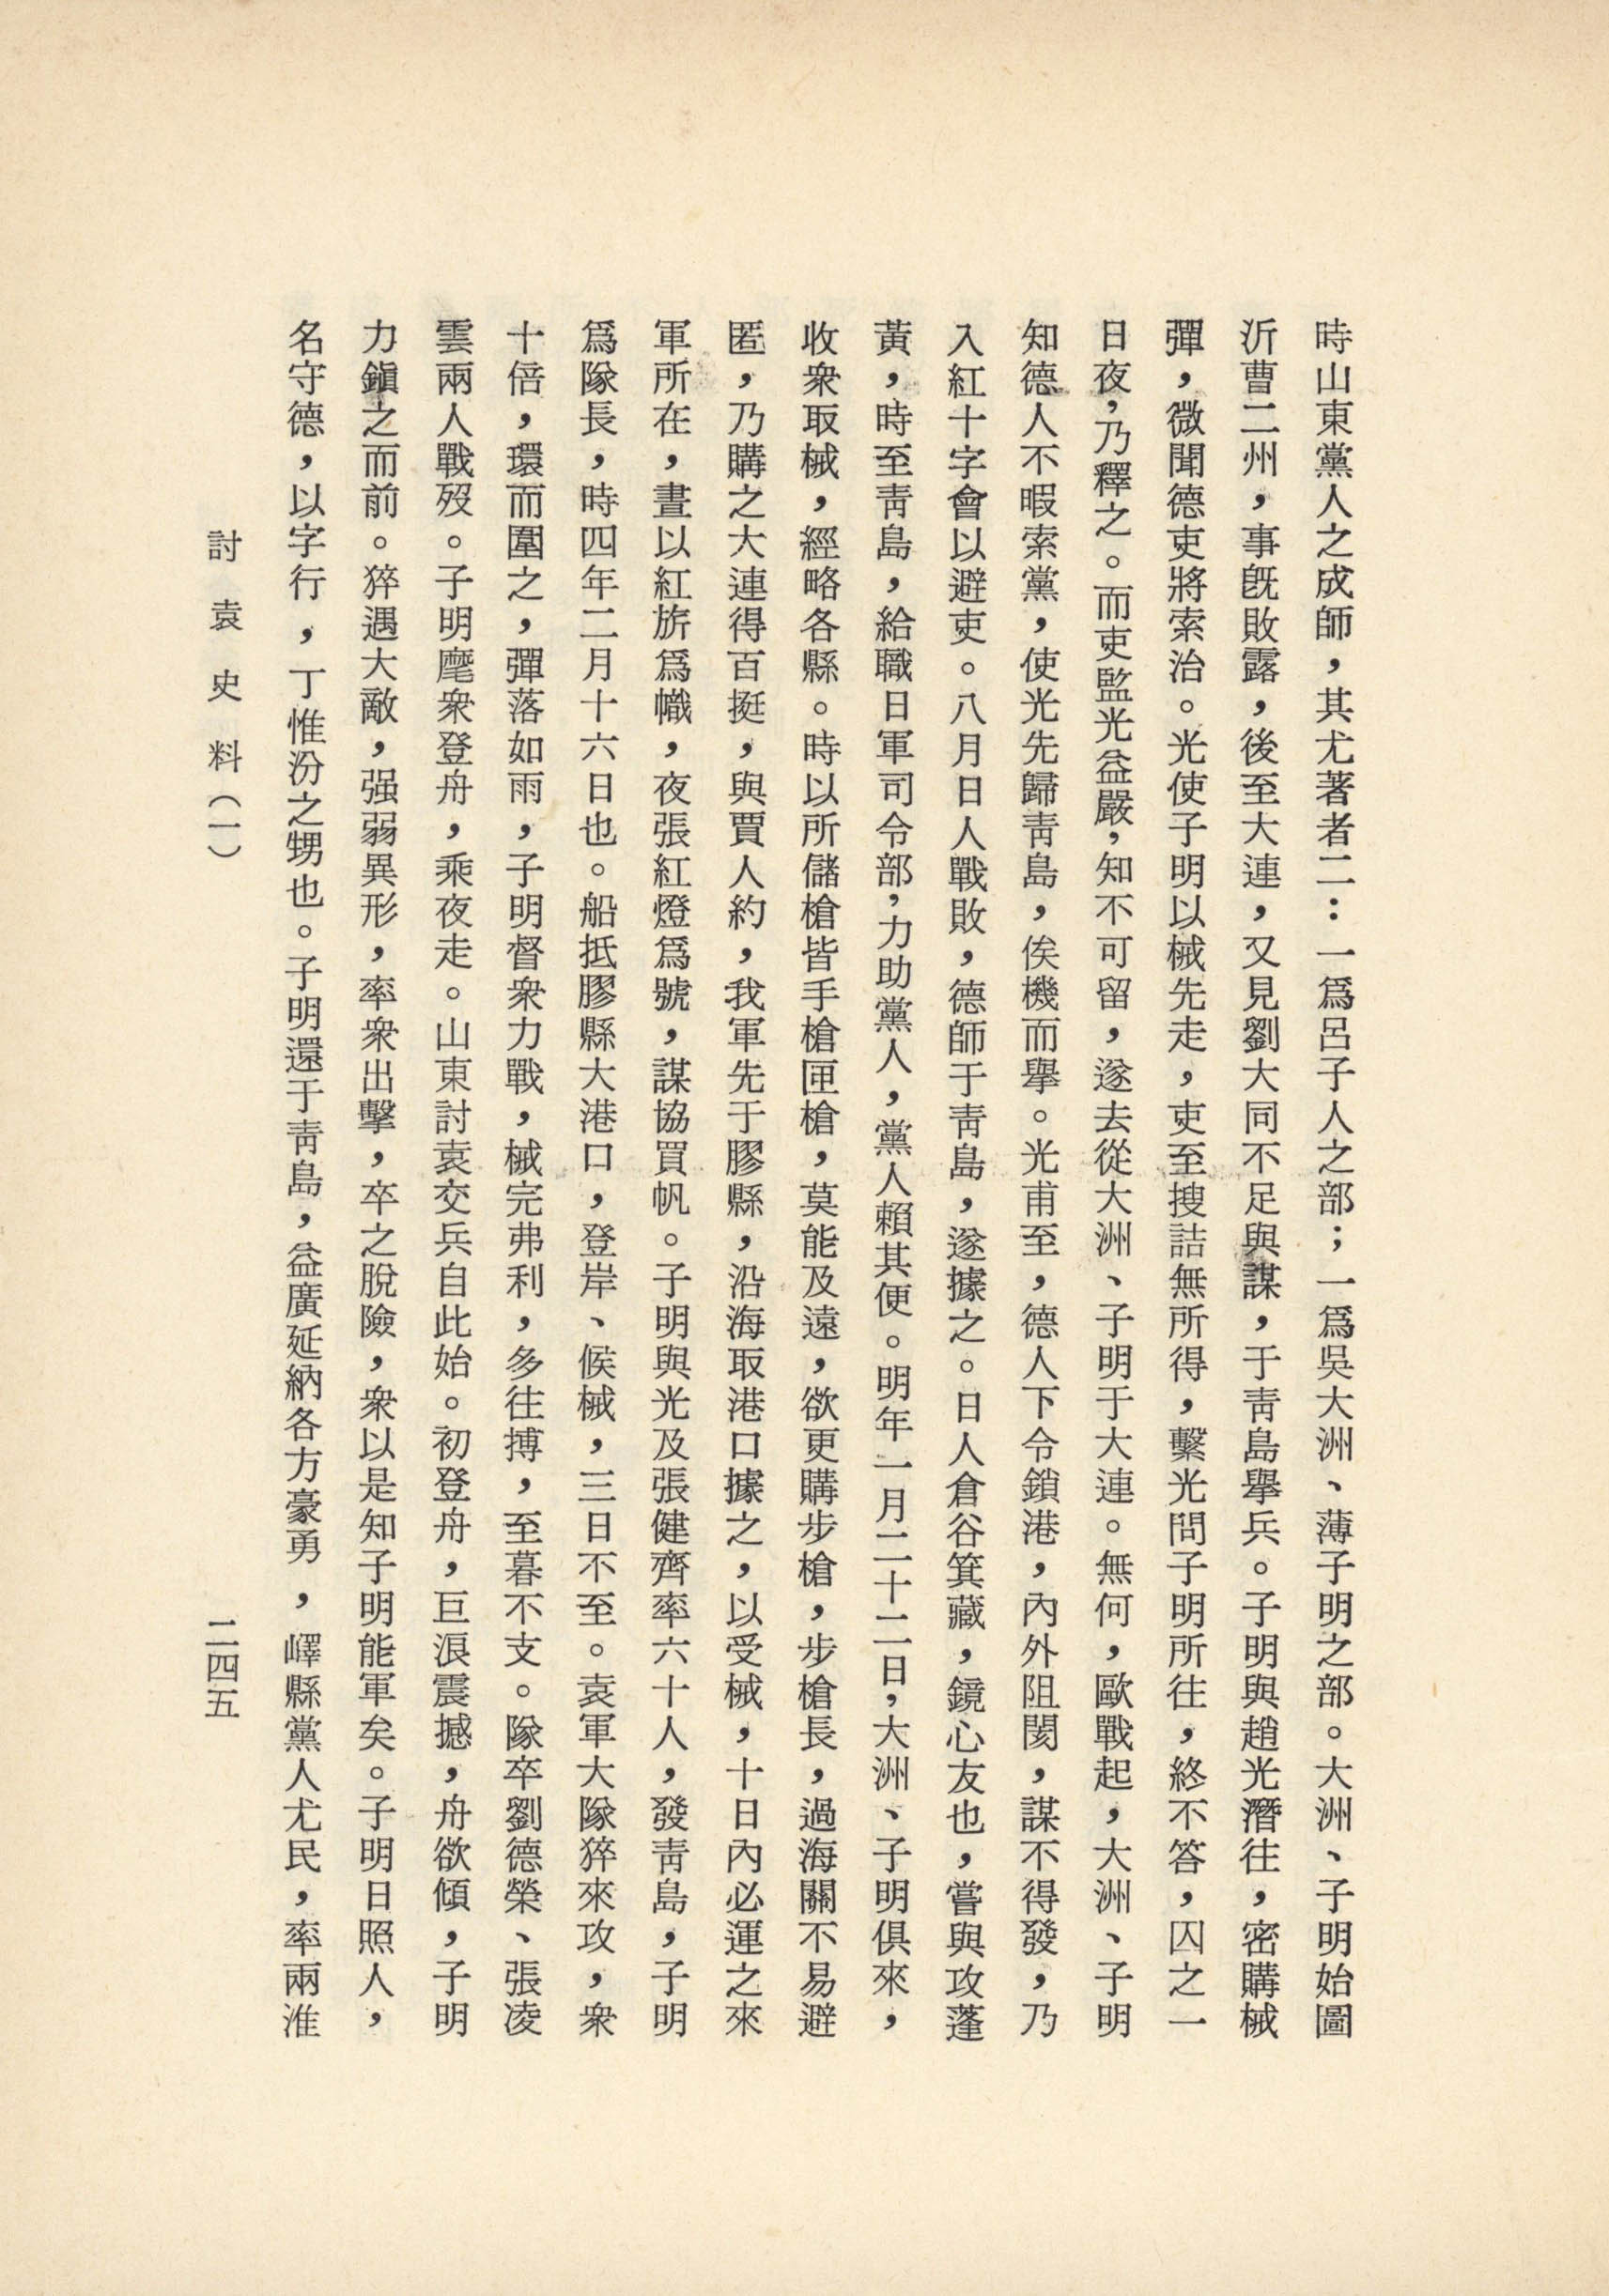 時山東黨人之成師，其尤著者二：一爲呂子人之部；一爲吳大洲、薄子明之部。大洲、子明始圖
沂曹二州，事旣敗露，後至大連，又見劉大同不足與謀，于靑島擧兵。子明與趙光潛往，密購械
彈，微聞德吏將索治。光使子明以械先走，吏至搜詰無所得，繫光問子明所往，終不答，囚之一
日夜，乃釋之。而吏監光益嚴，知不可留，遂去從大洲、子明于大連。無何，歐戰起，大洲、子明
知德人不暇索黨，使光先歸靑島，俟機而擧。光甫至，德人下令鎖港，內外阻閡，謀不得發，乃
入紅十字會以避吏。八月日人戰敗，德師于靑島，遂據之。日人倉谷箕藏，鏡心友也，嘗與攻蓬
黃，時至靑島，給職日軍司令部，力助黨人，黨人賴其便。明年一月二十二日，大洲、子明俱來，
收衆取械，經略各縣。時以所儲槍皆手槍匣槍，莫能及遠，欲更購步槍，步槍長，過海關不易避
匿，乃購之大連得百挺，與賈人約，我軍先于膠縣，沿海取港口據之，以受械，十日內必運之來
軍所在，晝以紅旂爲幟，夜張紅燈爲號，謀協買帆。子明與光及張健齊率六十人，發靑島，子明
爲隊長，時四年二月十六日也。船抵膠縣大港口，登岸、候械，三日不至。袁軍大隊猝來攻，衆
十倍，環而圍之，彈落如雨，子明督衆力戰，械完弗利，多往搏，至暮不支。隊卒劉德榮、張凌
雲兩人戰歿。子明麾衆登舟，乘夜走。山東討袁交兵自此始。初登舟，巨浪震撼，舟欲傾，子明
力鎭之而前。猝遇大敵，强弱異形，率衆出擊，卒之脫險，衆以是知子明能軍矣。子明日照人，
名守德，以字行，丁惟汾之甥也。子明還于靑島，益廣延納各方豪勇，嶧縣黨人尤民，率兩淮
討袁史料（一）
二四五